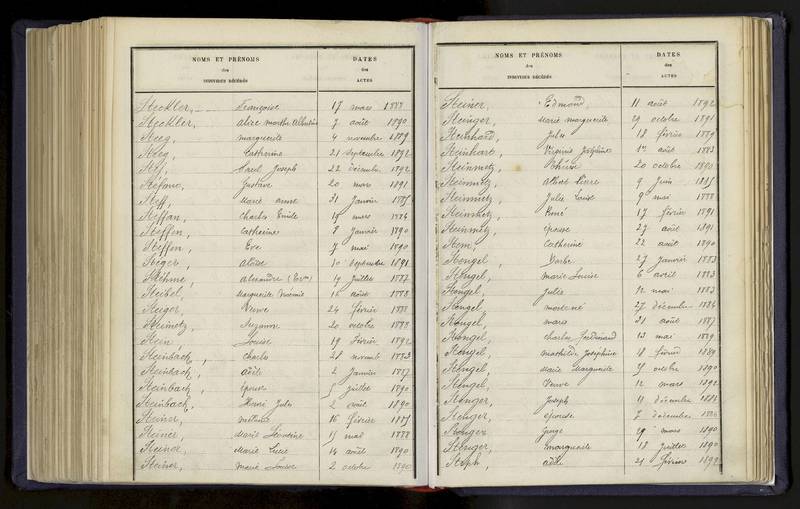 NOMS ET PRÉNOMS
des
INDIVIDUS DÉCÉDÉS
DATES
des
ACTES
Steckler, Françoise 17 mars 1888
Steckler, alice marthe 7 août 1890
Steeg, marguerite 4 novembre 1889
Steeg, Catherine 21 Septembre 1892
Stef, Carl Joseph 22 décembre 1892
Stéfano, Gustave 20 mars 1891
Steff, Marie anne 31 Janvier 1885
Steffan, Charles Emile 19 mars 1886
Steffen, Catherine 8 Janvier 1890
Steffen, Eve 7 mai 1890
Steger, aloïse 10 Septembre 1891
Stehme, alexandre 19 Juillet 1887
Steibel, Marguerite 16 août 1888
Steiger, Veuve 24 février 1888
Steimetz, Suzanne 20 octobre 1888
Stein, Louise 19 Février 1892
Steinbach, Charles 28 novemb 1883
Steinbach, adèle 2 Janvier 1887
Steinbach, Epouse 5 Juillet 1890
Steinbach, Henri Jules 2 août 1890
Steiner, 16 février 1885
Steiner, Marie Léontine 15 mai 1888
Steiner, Marie Lucie 14 août 1890
Steiner, Marie Louise 2 octobre 1890
NOMS ET PRÉNOMS
des
INDIVIDUS DÉCÉDÉS
DATES
des
ACTES
Steiner, Edmond, 11 août 1892
Steinger, Marie marguerite 29 octobre 1891
Steinhard, Jules 18 février 1889
Steinhart, Virginie Joséphine 1er août 1883
Steinmetz, Thérèse 20 octobre 1890
Steinmetz, Pierre 9 Juin 1885
Steinmetz, Julie Louise 9 mai 1888
Steinmetz, René 17 février 1891
Steinmetz, épouse 27 août 1891
Stem, Catherine 22 août 1890
Stengel, Barbe 27 Janvier 1883
Stengel, Marie Louise 6 avril 1883
Stengel, Julie 12 mai 1883
Stengel, mort-né 27 décembre 1886
Stengel, 31 août 1887
Stengel, Charles Ferdinand 13 mai 1889
Stengel, mathilde Joséphine 18 février 1889
Stengel, Marie Marguerite 25 octobre 1890
Stengel, Veuve 12 mars 1892
Stenger, Joseph 11 décembre 1882
Stenger, épouse 7 décembre 1886
Stenger, 29 mars 1890
Stenger, Marguerite 12 Juillet 1890
Steph, adèle 21 février 1892